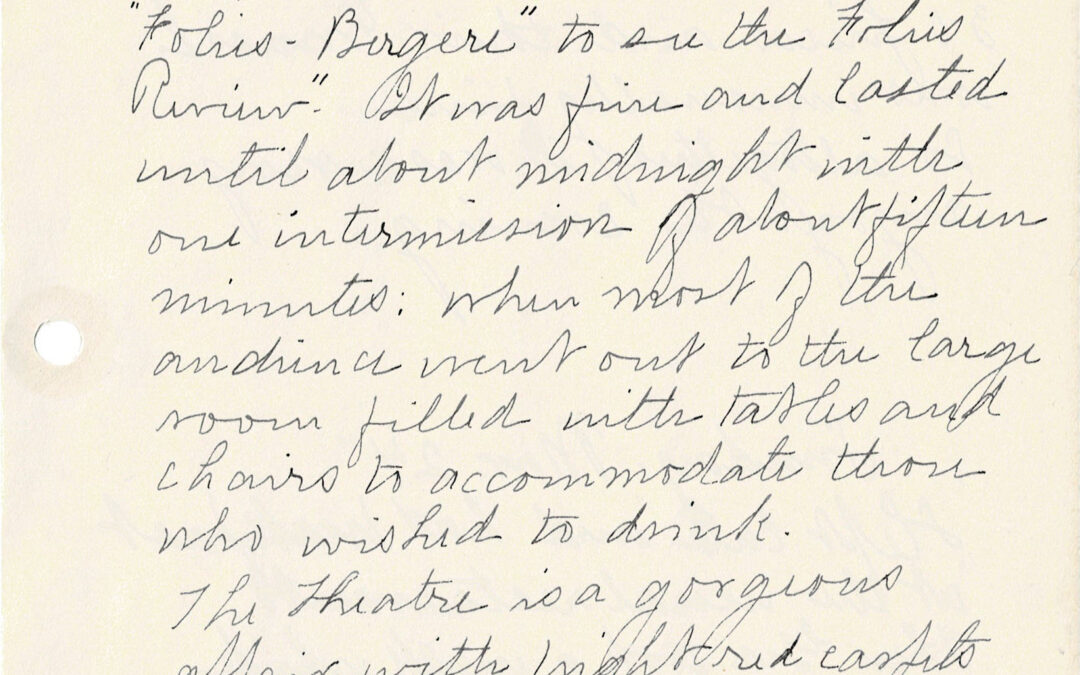 "Folies-Bergere" to see the Folies
Review". It was fine and lasted
until about midnight with
one intermission of about fifteen
minutes: when most of the
audience went out to the large
room filled with tables and
chairs to accommodate those
who wished to drink.
The Theatre is a gorgeous
affair with bright red carpets